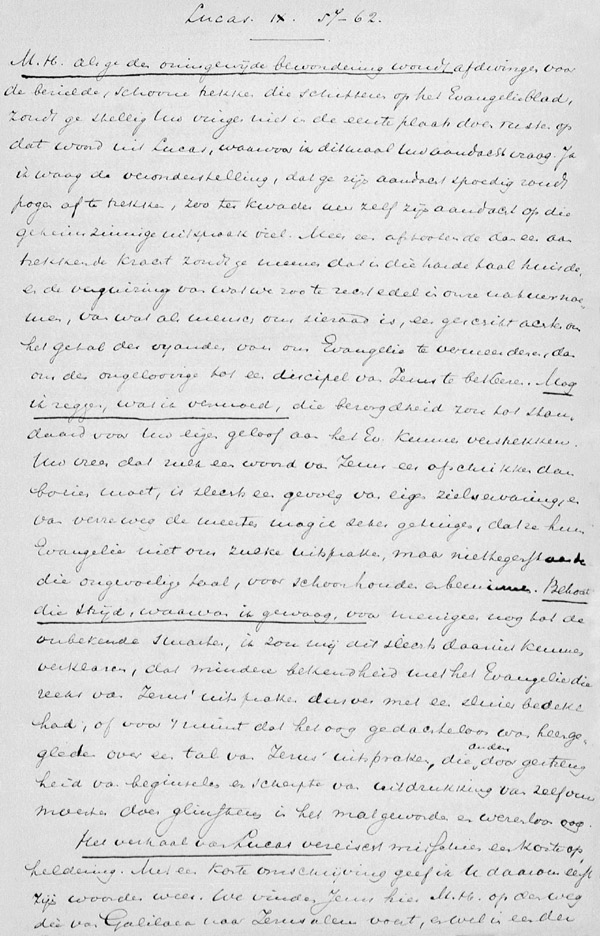 Lucas IX 57-62.
M.H. als ge den oningewijde bewondering woudt afdwingen voor
de bezielde, schoone trekken die schitteren op het Evangelieblad,
zoudt ge stellig Uw vinger niet in de eerste plaats doen rusten op
dat woord uit Lucas, waarvoor ik ditmaal Uw aandacht vraag. Ja
ik waag de veronderstelling, dat ge zijn aandacht spoedig zoudt
pogen af te trekken, zoo ten kwaden ure zelf zijn aandacht op die
geheimzinnige uitspraak viel. Meer een afstootende dan een aan
trekkende kracht zoudt ge meenen dat in die harde taal huisde,
en de van wat we zoo te recht edel in onze natuur noe-
men, van wat als mensch ons sieraad is, eer geschikt achten om
het getal der vijanden van ons Evangelie te vermeerderen, dan
om den ongeloovige tot een discipel van Jezus te bekeeren. Mag
ik zeggen, wat ik vermoed, die bezorgdheid zou tot stan
daard voor Uw eigen geloof aan het Ev. kunnen verstrekken.
Uw vrees dat zulk een woord van Jezus eer afschrikken dan
boeien moet, is slechts een gevolg van eigen zielservaring, en
van verreweg de meesten mag ik zeker getuigen, dat ze hun
Evangelie niet om zulke uitspraken, maar niettegenstaande
die ongevoelige taal, voor schoon houden en beminnen. Behoort
die strijd, waarvan ik gewaag, voor menigeen nog tot de
onbekende smarten, ik zou mij dit slechts daaruit kunnen
verklaren, dat mindere bekendheid met het Evangelie die
reeks van Jezus' uitspraken dusver met een sluier bedekt
had, of voor 't minst dat het oog gedachteloos was heenge-
gleden over een tal van Jezus' uitspraken, die anders door gestreng
heid van beginselen en scherpte van uitdrukking van zelf ons
moesten doen glinsteren in het mat geworden en oog.
Het verhaal van Lucas vereischt misschien een korte op
heldering. Met een korte omschrijving geef ik U daarom eerst
zijn woorden weer. We vinden Jezus hier M.H. op den weg
die van Galilaea naar Jerusalem voert, en wel in een der